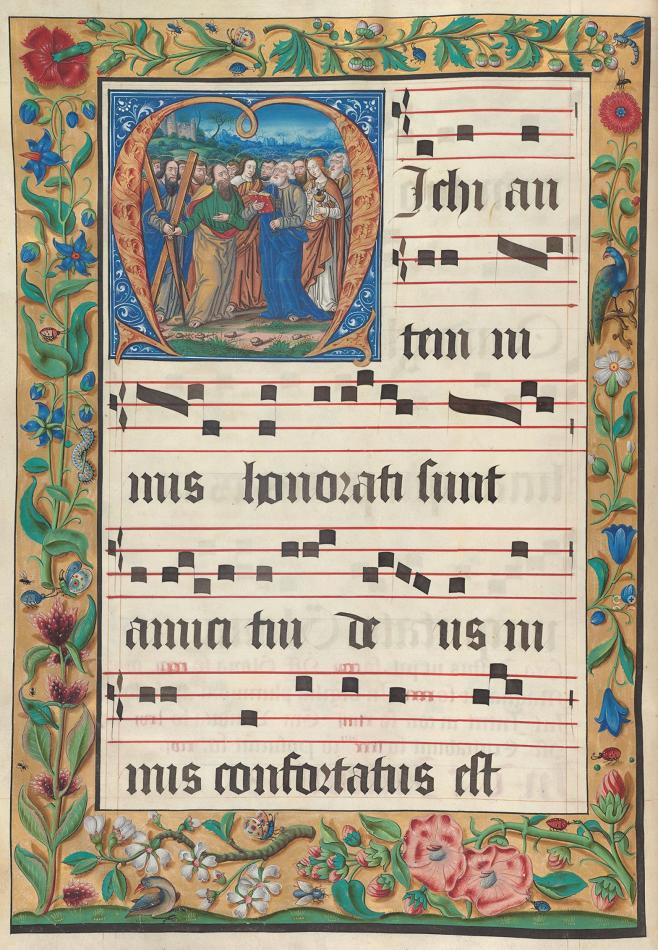 MIchi au
tem ni
mis honorati sunt
amici tui de us ni
mis confortatus est